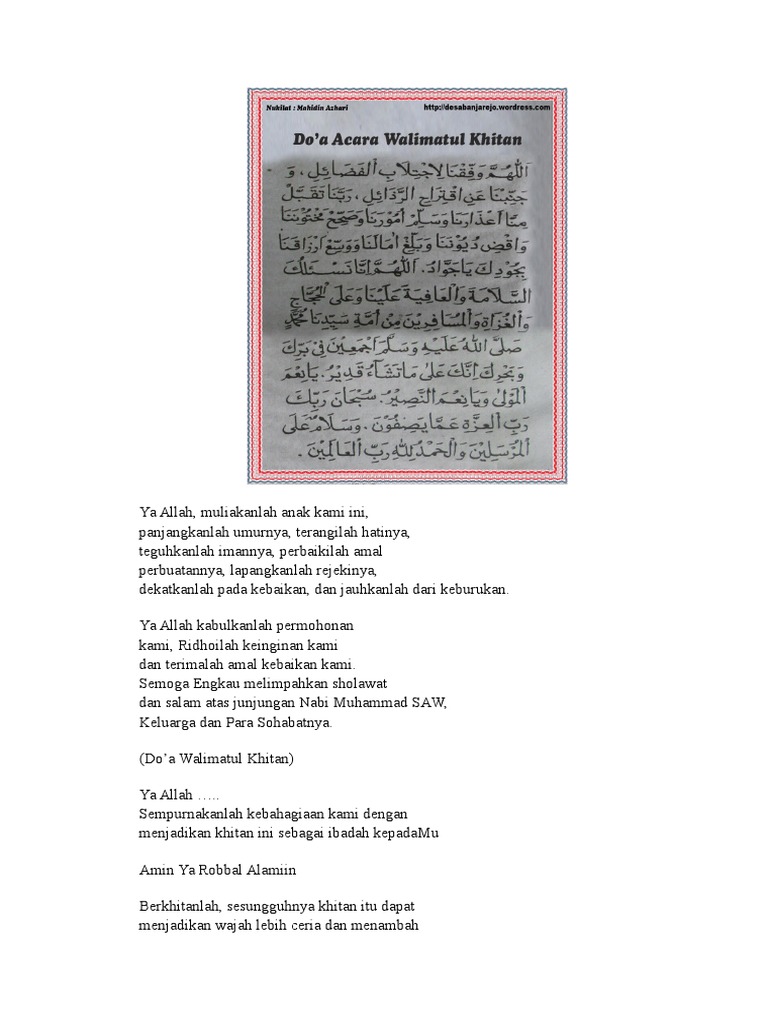 Nukilat : Mahidin Azhari
http://desabanjarejo.wordress.com
Do'a Acara Walimatul Khitan
اَللّٰهُمَّ وَفِّقْنَا لِاجْتِلَابِ الْفَضَائِلِ ، وَ
جَنِّبْنَا عَنِ اقْتِرَاحِ الرَّذَائِلِ ، رَبَّنَا تَقَبَّلْ
مِنَّا اَعْذَارَنَا وَسَلِّمْ اُمُوْرَنَا وَصَحِّحْ مَخْتُوْنَنَا
وَاقْضِ دُيُوْنَنَا وَبَلِّغْ اٰمَالَنَا وَوَسِّعْ اَرْزَاقَنَا
بِجُوْدِكَ يَاجَوَّادُ. اَللّٰهُمَّ اِنَّا نَسْئَلُكَ
السَّلَامَةَ وَالْعَافِيَةَ عَلَيْنَا وَعَلَى الْحُجَّاجِ
وَالْغُزَاةِ وَالْمُسَافِرِيْنَ مِنْ اُمَّةِ سَيِّدِنَا مُحَمَّدٍ
صَلَّى اللهُ عَلَيْهِ وَسَلَّمَ اَجْمَعِيْنَ فِيْ بَرِّكَ
وَبَحْرِكَ اِنَّكَ عَلٰى مَا تَشَآءُ قَدِيْرٌ. يَانِعْمَ
الْمَوْلٰى وَيَانِعْمَ النَّصِيْرُ. سُبْحَانَ رَبِّكَ
رَبِّ الْعِزَّةِ عَمَّا يَصِفُوْنَ. وَسَلَامٌ عَلَى
الْمُرْسَلِيْنَ وَالْحَمْدُ لِلّٰهِ رَبِّ الْعَالَمِيْنَ .
Ya Allah, muliakanlah anak kami ini,
panjangkanlah umurnya, terangilah hatinya,
teguhkanlah imannya, perbaikilah amal
perbuatannya, lapangkanlah rejekinya,
dekatkanlah pada kebaikan, dan jauhkanlah dari keburukan.
Ya Allah kabulkanlah permohonan
kami, Ridhoilah keinginan kami
dan terimalah amal kebaikan kami.
Semoga Engkau melimpahkan sholawat
dan salam atas junjungan Nabi Muhammad SAW,
Keluarga dan Para Sohabatnya.
(Do'a Walimatul Khitan)
Ya Allah …..
Sempurnakanlah kebahagiaan kami dengan
menjadikan khitan ini sebagai ibadah kepadaMu
Amin Ya Robbal Alamiin
Berkhitanlah, sesungguhnya khitan itu dapat
menjadikan wajah lebih ceria dan menambah